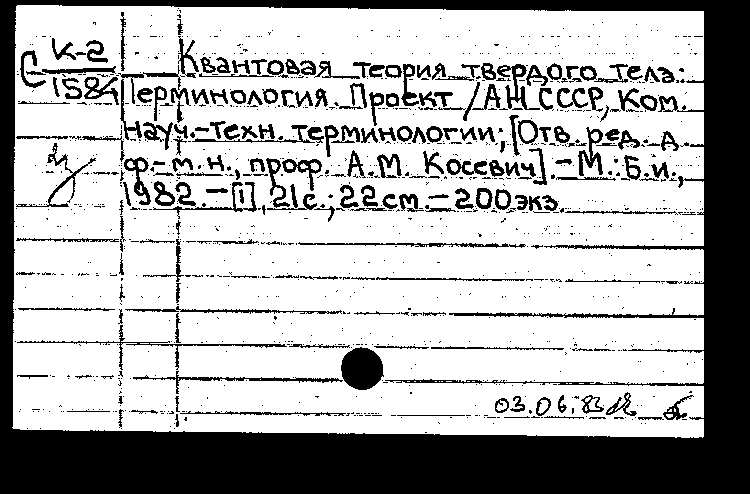 С К-2
1584
Квантовая теория твердого тела:
Терминология. Проект / АН СССР, Ком.
науч.-техн. терминологии; [Отв. ред. д.
ф.-м.н., проф. А.М. Косевич]. — М.: Б.и.,
1982. — [1], 21 с.; 22 cm. — 200 экз.
03.06.83